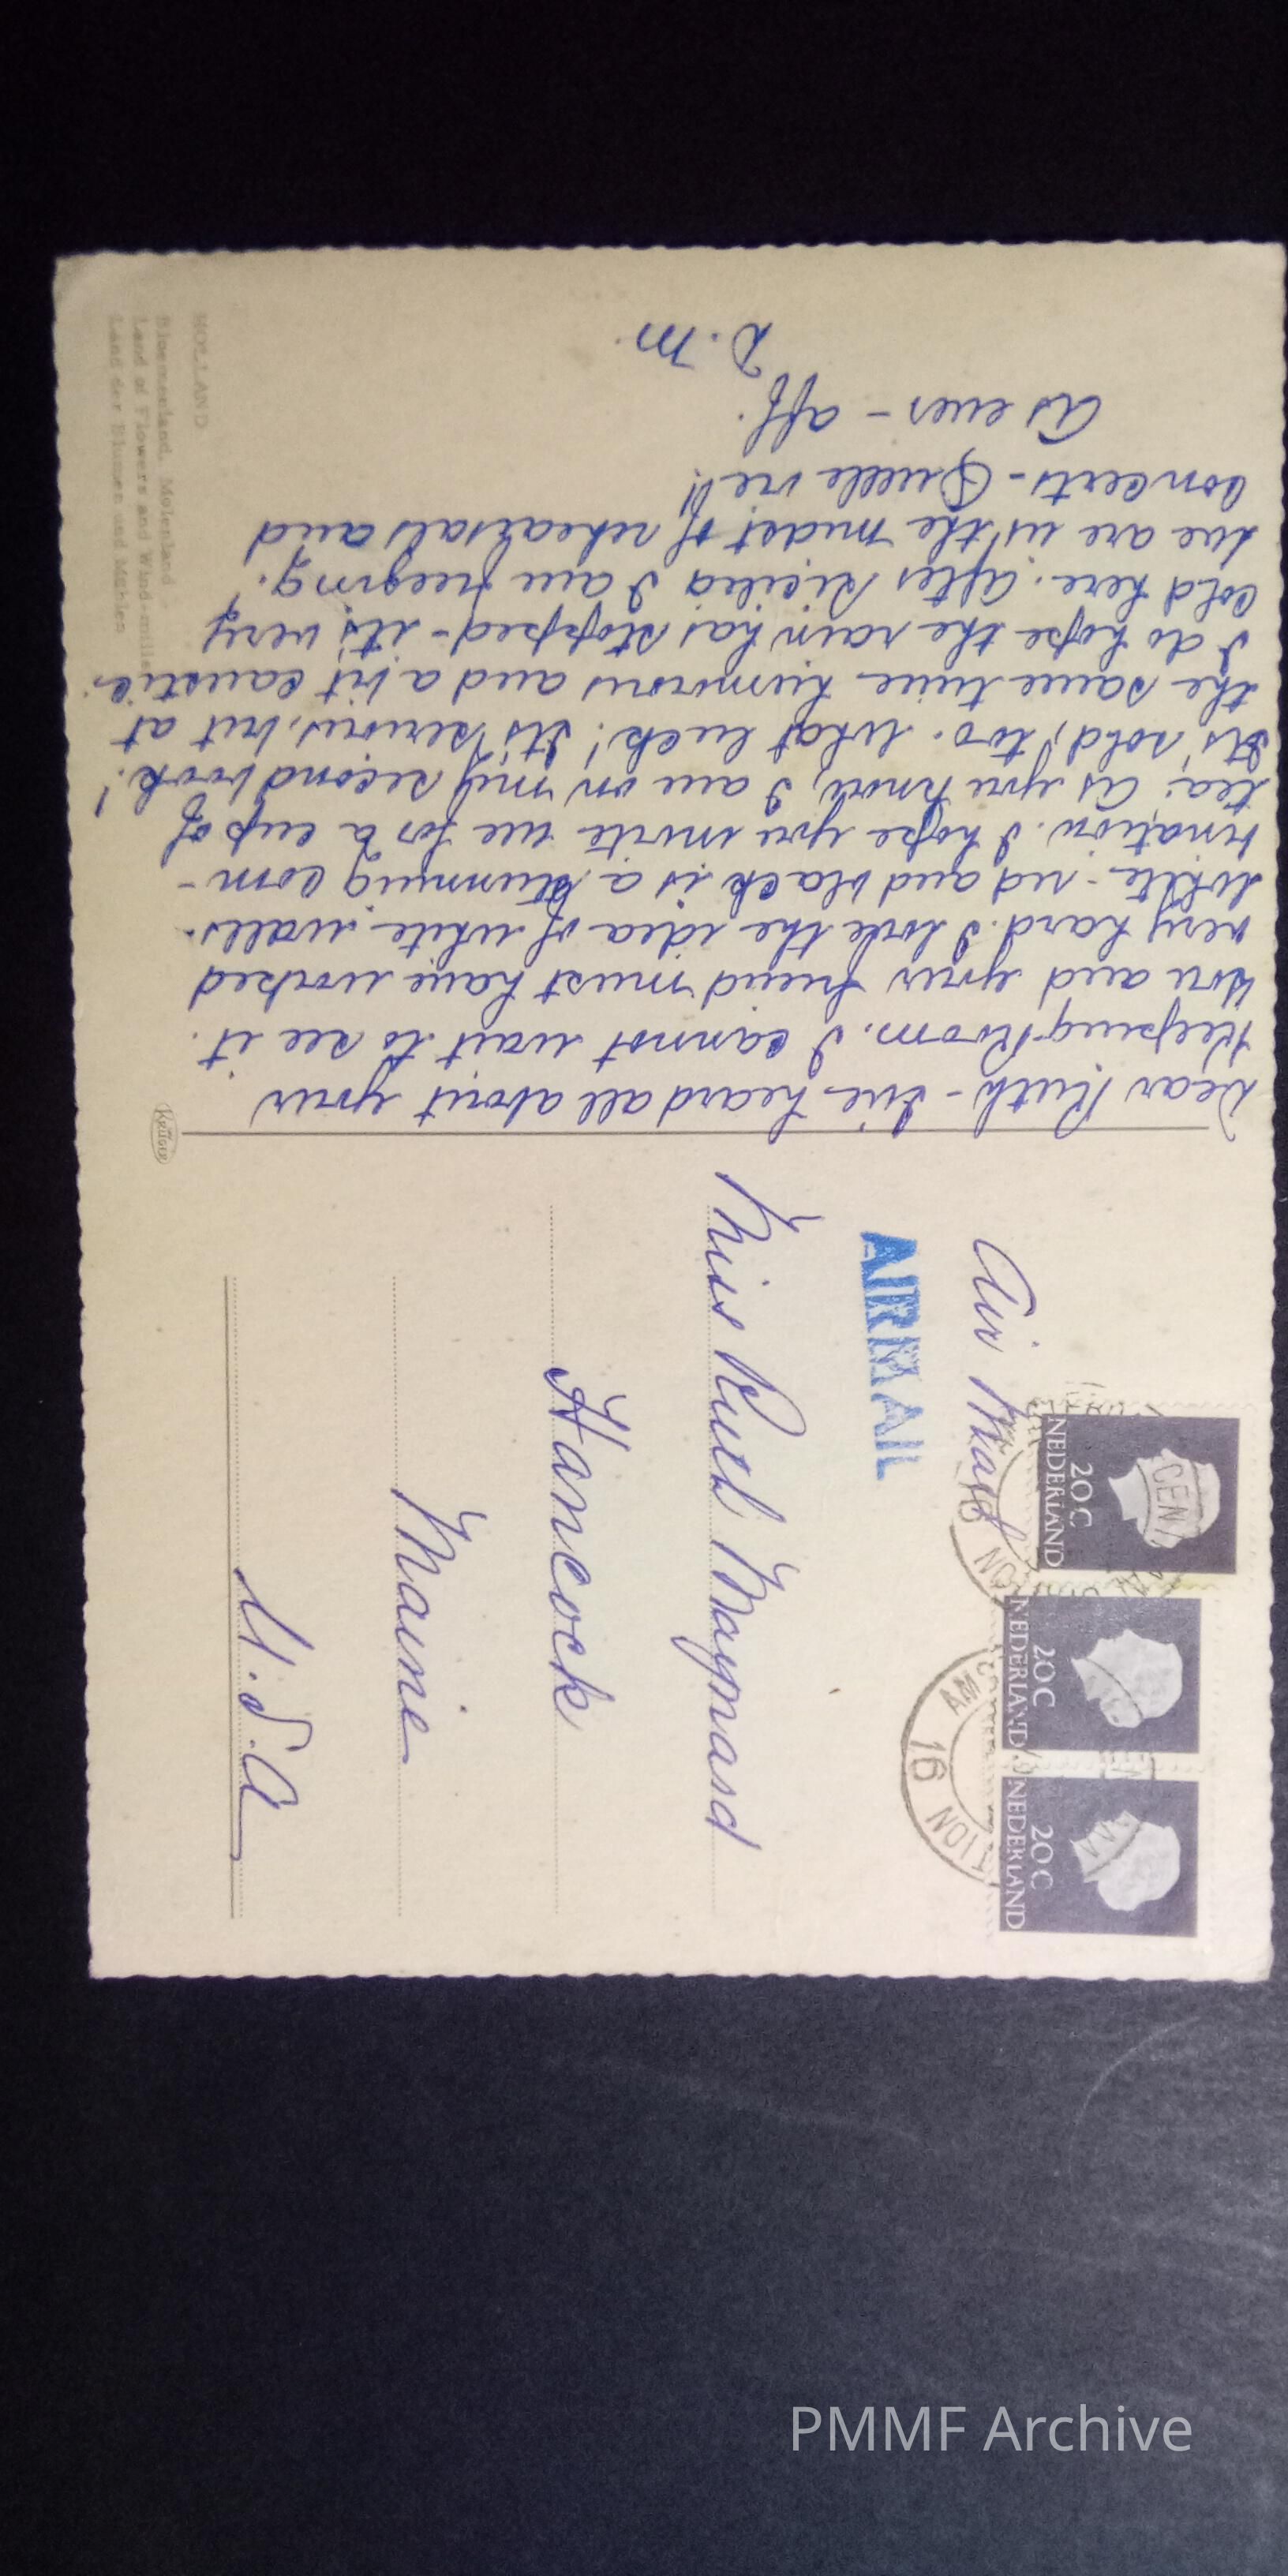 Dear Ruth - I've heard all about your
Keeping Room. I cannot wait to see it.
You and your friend must have worked
very hard. I love the idea of white walls.
White - red and black is a stunning com-
bination. I hope you invite me for a cup of
tea. As you know, I am on my second book!
It's sold, too. What luck! It's serious, but at
the same time humorous and a bit caustic.
I do hope the rain has stopped - it's very
cold here. After Sicilia I am freezing.
We are in the midst of rehearsals and
concerts - Quelle vie!!
As ever - aff.
D.M.
HOLLAND
Bloemenland, Molenland
Land of Flowers and Wind-mills
Land der Blumen und Mühlen
Krüger
Air Mail
AIRMAIL
Miss Ruth Maynard
Hancock
Maine
U.S.A
20C
NEDERLAND
20C
NEDERLAND
20C
NEDERLAND
16
16
PMMF Archive